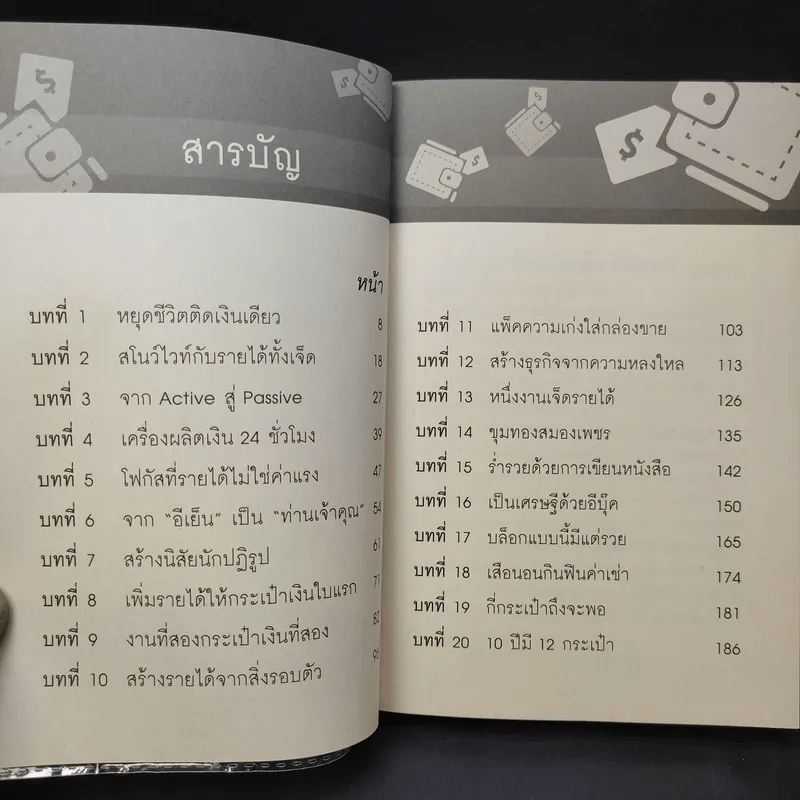 สารบัญ
หน้า
บทที่ 1 หยุดชีวิตติดเงินเดียว 8
บทที่ 2 สโนว์ไวท์กับรายได้ทั้งเจ็ด 18
บทที่ 3 จาก Active สู่ Passive 27
บทที่ 4 เครื่องผลิตเงิน 24 ชั่วโมง 39
บทที่ 5 โฟกัสที่รายได้ไม่ใช่ค่าแรง 47
บทที่ 6 จาก “อีเย็น” เป็น “ท่านเจ้าคุณ” 54
บทที่ 7 สร้างนิสัยนักปฏิรูป 61
บทที่ 8 เพิ่มรายได้ให้กระเป๋าเงินใบแรก 71
บทที่ 9 งานที่สองกระเป๋าเงินที่สอง 82
บทที่ 10 สร้างรายได้จากสิ่งรอบตัว 96
บทที่ 11 แพ็คความเก่งใส่กล่องขาย 103
บทที่ 12 สร้างธุรกิจจากความหลงใหล 113
บทที่ 13 หนึ่งงานเจ็ดรายได้ 126
บทที่ 14 ขุมทองสมองเพชร 135
บทที่ 15 ร่ำรวยด้วยการเขียนหนังสือ 142
บทที่ 16 เป็นเศรษฐีด้วยอีบุ๊ค 150
บทที่ 17 บล็อกแบบนี้มีแต่รวย 165
บทที่ 18 เสือนอนกินฟินค่าเช่า 174
บทที่ 19 กี่กระเป๋าถึงจะพอ 181
บทที่ 20 10 ปีมี 12 กระเป๋า 186